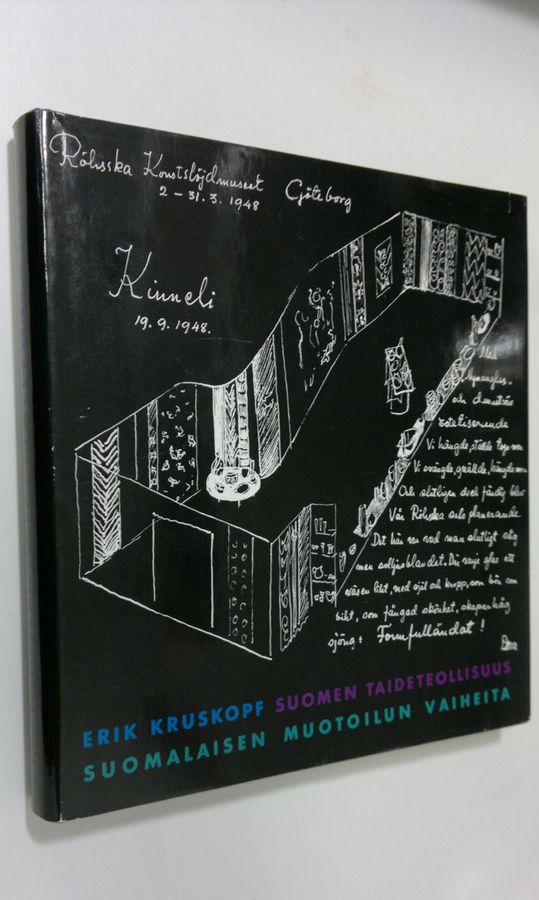 Röhsska Konstslöjdmuseet Göteborg
2–31.3.1948
Kinneli
19.9.1948.
och
Vi hängde, ställde
Vi svängde, gnällde, hängde om
Och slutligen doch färdig blev
Vår Röhsska
Det här var vad man slutligt såg
men solljus blandat. Du varje glas ett
väsen likt, med själ och kropp, som
likt, som fångad skönhet, skaparhåg
sjöng: Formfulländat!
ERIK KRUSKOPF SUOMEN TAIDETEOLLISUUS
SUOMALAISEN MUOTOILUN VAIHEITA